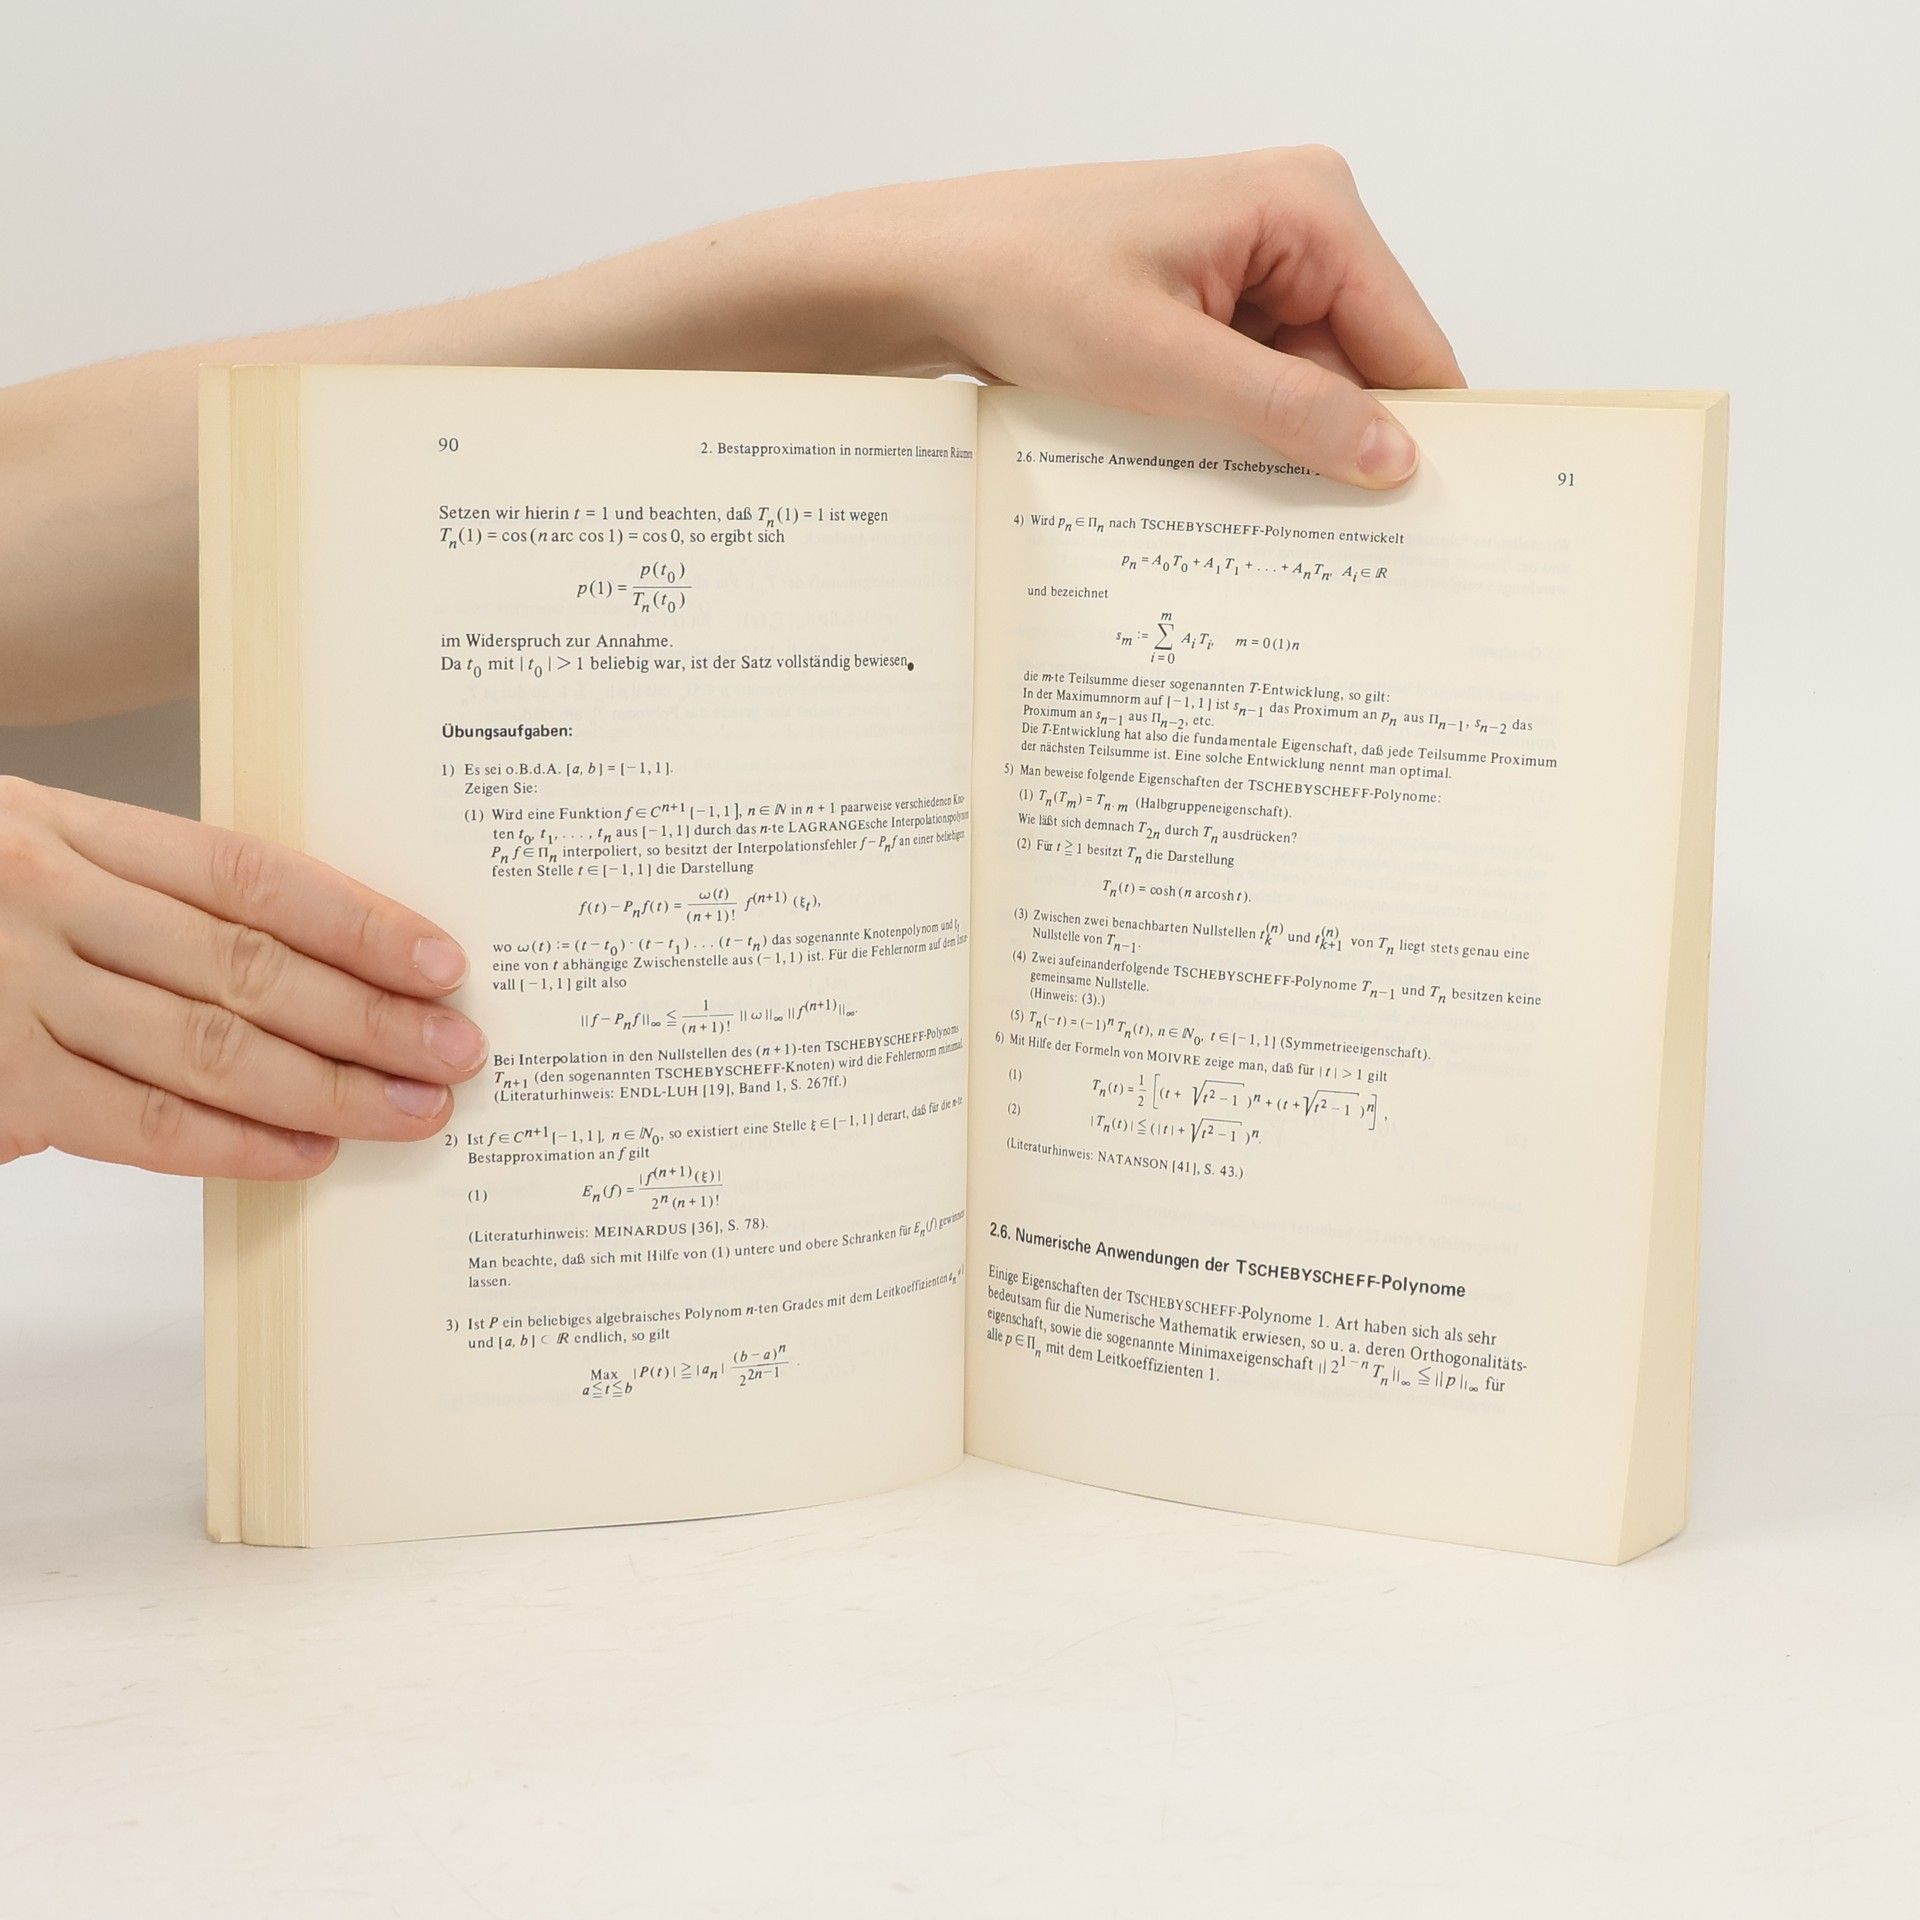 90
2. Bestapproximation in normierten linearen Räumen
Setzen wir hierin t = 1 und beachten, daß Tₙ(1) = 1 ist wegen
Tₙ(1) = cos (n arc cos 1) = cos 0, so ergibt sich
p(1) = p(t₀) / Tₙ(t₀)
im Widerspruch zur Annahme.
Da t₀ mit | t₀ | > 1 beliebig war, ist der Satz vollständig bewiesen.
Übungsaufgaben:
1) Es sei o.B.d.A. [a, b] = [−1, 1].
Zeigen Sie:
(1) Wird eine Funktion f ∈ Cⁿ⁺¹ [−1, 1], n ∈ ℕ in n + 1 paarweise verschiedenen Kno-
ten t₀, t₁, . . . , tₙ aus [−1, 1] durch das n-te LAGRANGEsche Interpolationspolynom
Pₙ f ∈ Πₙ interpoliert, so besitzt der Interpolationsfehler f − Pₙf an einer beliebigen
festen Stelle t ∈ [−1, 1] die Darstellung
f(t) − Pₙf(t) = ω(t) / (n + 1)! f⁽ⁿ⁺¹⁾ (ξₜ),
wo ω(t) := (t − t₀) · (t − t₁) . . . (t − tₙ) das sogenannte Knotenpolynom und ξₜ
eine von t abhängige Zwischenstelle aus (−1, 1) ist. Für die Fehlernorm auf dem Inter-
vall [−1, 1] gilt also
||f − Pₙf||∞ ≦ 1 / (n + 1)! ||ω||∞ ||f⁽ⁿ⁺¹⁾||∞.
Bei Interpolation in den Nullstellen des (n + 1)-ten TSCHEBYSCHEFF-Polynoms
Tₙ₊₁ (den sogenannten TSCHEBYSCHEFF-Knoten) wird die Fehlernorm minimal.
(Literaturhinweis: ENDL-LUH [19], Band 1, S. 267ff.)
2) Ist f ∈ Cⁿ⁺¹ [−1, 1], n ∈ ℕ₀, so existiert eine Stelle ξ ∈ [−1, 1] derart, daß für die n-te
Bestapproximation an f gilt
(1) Eₙ(f) = |f⁽ⁿ⁺¹⁾(ξ)| / 2ⁿ (n + 1)!
(Literaturhinweis: MEINARDUS [36], S. 78).
Man beachte, daß sich mit Hilfe von (1) untere und obere Schranken für Eₙ(f) gewinnen
lassen.
3) Ist P ein beliebiges algebraisches Polynom n-ten Grades mit dem Leitkoeffizienten aₙ
und [a, b] ⊂ ℝ endlich, so gilt
Max a≦t≦b |P(t)| ≧ |aₙ| (b − a)ⁿ / 2²ⁿ⁻¹ .
2.6. Numerische Anwendungen der
91
4) Wird pₙ ∈ Πₙ nach TSCHEBYSCHEFF-Polynomen entwickelt
pₙ = A₀T₀ + A₁T₁ + . . . + AₙTₙ, Aᵢ ∈ ℝ
und bezeichnet
sₘ := ∑ᵢ₌₀ᵐ AᵢTᵢ, m = 0(1)n
die m-te Teilsumme dieser sogenannten T-Entwicklung, so gilt:
In der Maximumnorm auf [−1, 1] ist sₙ₋₁ das Proximum an pₙ aus Πₙ₋₁, sₙ₋₂ das
Proximum an sₙ₋₁ aus Πₙ₋₂, etc.
Die T-Entwicklung hat also die fundamentale Eigenschaft, daß jede Teilsumme Proximum
der nächsten Teilsumme ist. Eine solche Entwicklung nennt man optimal.
5) Man beweise folgende Eigenschaften der TSCHEBYSCHEFF-Polynome:
(1) Tₙ(Tₘ) = Tₙ.ₘ (Halbgruppeneigenschaft).
Wie läßt sich demnach T₂ₙ durch Tₙ ausdrücken?
(2) Für t ≧ 1 besitzt Tₙ die Darstellung
Tₙ(t) = cosh (n arcosh t).
(3) Zwischen zwei benachbarten Nullstellen tₖ⁽ⁿ⁾ und tₖ₊₁⁽ⁿ⁾ von Tₙ liegt stets genau eine
Nullstelle von Tₙ₋₁.
(4) Zwei aufeinanderfolgende TSCHEBYSCHEFF-Polynome Tₙ₋₁ und Tₙ besitzen keine
gemeinsame Nullstelle.
(Hinweis: (3).)
(5) Tₙ(−t) = (−1)ⁿ Tₙ(t), n ∈ ℕ₀, t ∈ [−1, 1] (Symmetrieeigenschaft).
6) Mit Hilfe der Formeln von MOIVRE zeige man, daß für |t| > 1 gilt
(1) Tₙ(t) = 1/2 [(t + √(t² − 1) )ⁿ + (t + √(t² − 1) )ⁿ] ,
(2) |Tₙ(t)| ≦ (|t| + √(t² − 1) )ⁿ.
(Literaturhinweis: NATANSON [41], S. 43.)
2.6. Numerische Anwendungen der TSCHEBYSCHEFF-Polynome
Einige Eigenschaften der TSCHEBYSCHEFF-Polynome 1. Art haben sich als sehr
bedeutsam für die Numerische Mathematik erwiesen, so u. a. deren Orthogonalitäts-
eigenschaft, sowie die sogenannte Minimaxeigenschaft || 2¹⁻ⁿ Tₙ||∞ ≦ ||p||∞ für
alle p ∈ Πₙ mit dem Leitkoeffizienten 1.